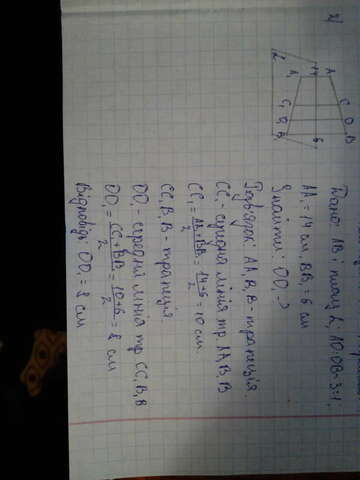 2)
Дано: AB і площ α; AO:OB=3:1;
AA₁ = 14 см, BB₁ = 6 см
Знайти: OO₁ - ?
Розв'язок: AA₁B₁B - трапеція
CC₁ - середня лінія тр AA₁B₁B
CC₁ = AA₁+BB₁/2 = 14+6/2 = 10 см
CC₁B₁B - трапеція.
OO₁ - середня лінія тр CC₁B₁B
OO₁ = CC₁+BB₁/2 = 10+6/2 = 8 см
Відповідь: OO₁ = 8 см
A
A₁
14
C
C₁
O
O₁
B
B₁
6